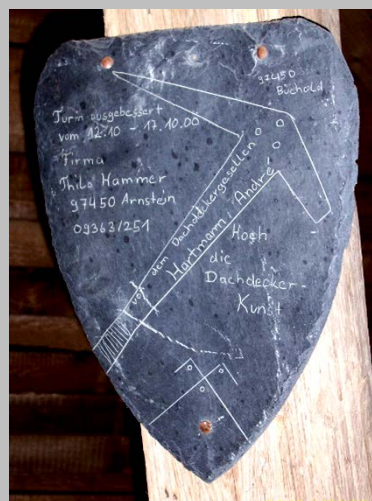 Turm ausgebessert
vom 12.10 - 17.10.00
Firma
Thilo Hammer
97450 Arnstein
09363/251
97450
Büchold
von dem Dachdeckergesellen
Hartmann, André
Hoch
die
Dachdecker-
Kunst